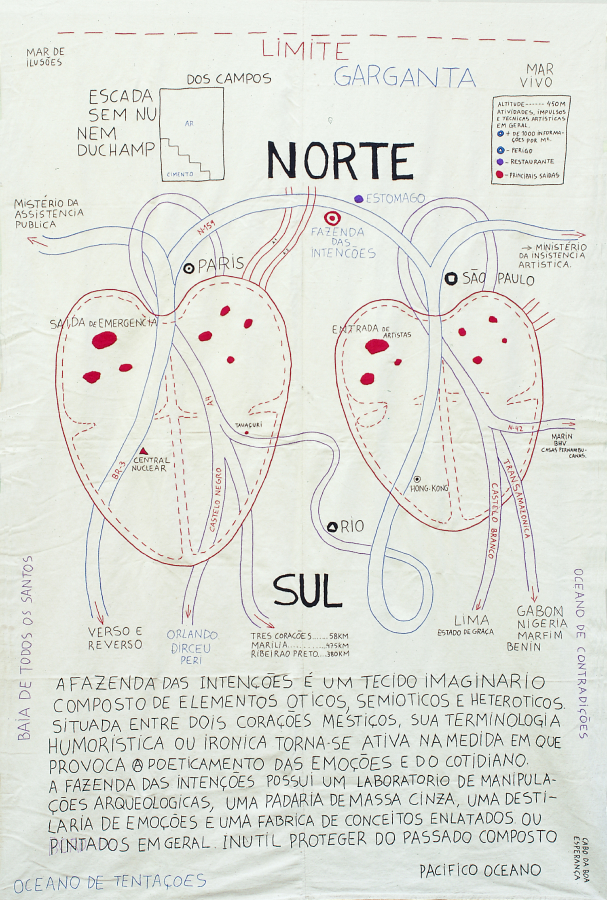 LIMITE
MAR DE
ILUSÕES
GARGANTA
MAR
VIVO
DOS CAMPOS
ESCADA
SEM NU
NEM
DUCHAMP
AR
CIMENTO
ALTITUDE------450M
ATIVIDADES, IMPULSOS
E TÉCNICAS ARTÍSTICAS
EM GERAL.
+ DE 7000 INFORMA-
ÇÕES POR M².
- PERIGO
- RESTAURANTE
- PRINCIPAIS SAÍDAS
NORTE
MISTÉRIO DA
ASSISTENCIA
PUBLICA
N-154
ESTOMAGO
FAZENDA
DAS
INTENÇÕES
→ MINISTÉRIO
DA INSISTENCIA
ARTÍSTICA.
PARIS
SÃO PAULO
SAÍDA DE EMERGENCIA
ENTRADA DE
ARTISTAS
A4
TAUAÇURÍ
N-42
MARIN
BHV
CASAS PERNAMBU-
CANAS.
CENTRAL
NUCLEAR
BR-3
CASTELO NEGRO
HONG-KONG
CASTELO BRANCO
TRANSAMAZONICA
RIO
SUL
VERSO E
REVERSO
ORLANDO
DIRCEU
PERI
TRES CORAÇÕES......58KM
MARILIA............475KM
RIBEIRAO PRETO...380KM
LIMA
ESTADO DE GRAÇA
GABON
NIGERIA
MARFIM
BENIN
BAIA DE TODOS OS SANTOS
OCEANO DE CONTRADIÇÕES
A FAZENDA DAS INTENÇÕES É UM TECIDO IMAGINARIO
COMPOSTO DE ELEMENTOS OTICOS, SEMIOTICOS E HETEROTICOS.
SITUADA ENTRE DOIS CORAÇÕES MESTIÇOS, SUA TERMINOLOGIA
HUMORÍSTICA OU IRONICA TORNA-SE ATIVA NA MEDIDA EM QUE
PROVOCA A POETICAMENTO DAS EMOÇÕES E DO COTIDIANO.
A FAZENDA DAS INTENÇÕES POSSUI UM LABORATORIO DE MANIPULA-
ÇÕES ARQUEOLOGICAS, UMA PADARIA DE MASSA CINZA, UMA DESTI-
LARIA DE EMOÇÕES E UMA FABRICA DE CONCEITOS ENLATADOS OU
PINTADOS EM GERAL. INUTIL PROTEGER DO PASSADO COMPOSTO
CABO DA BOA
ESPERANÇA
PACIFICO OCEANO
OCEANO DE TENTAÇOES